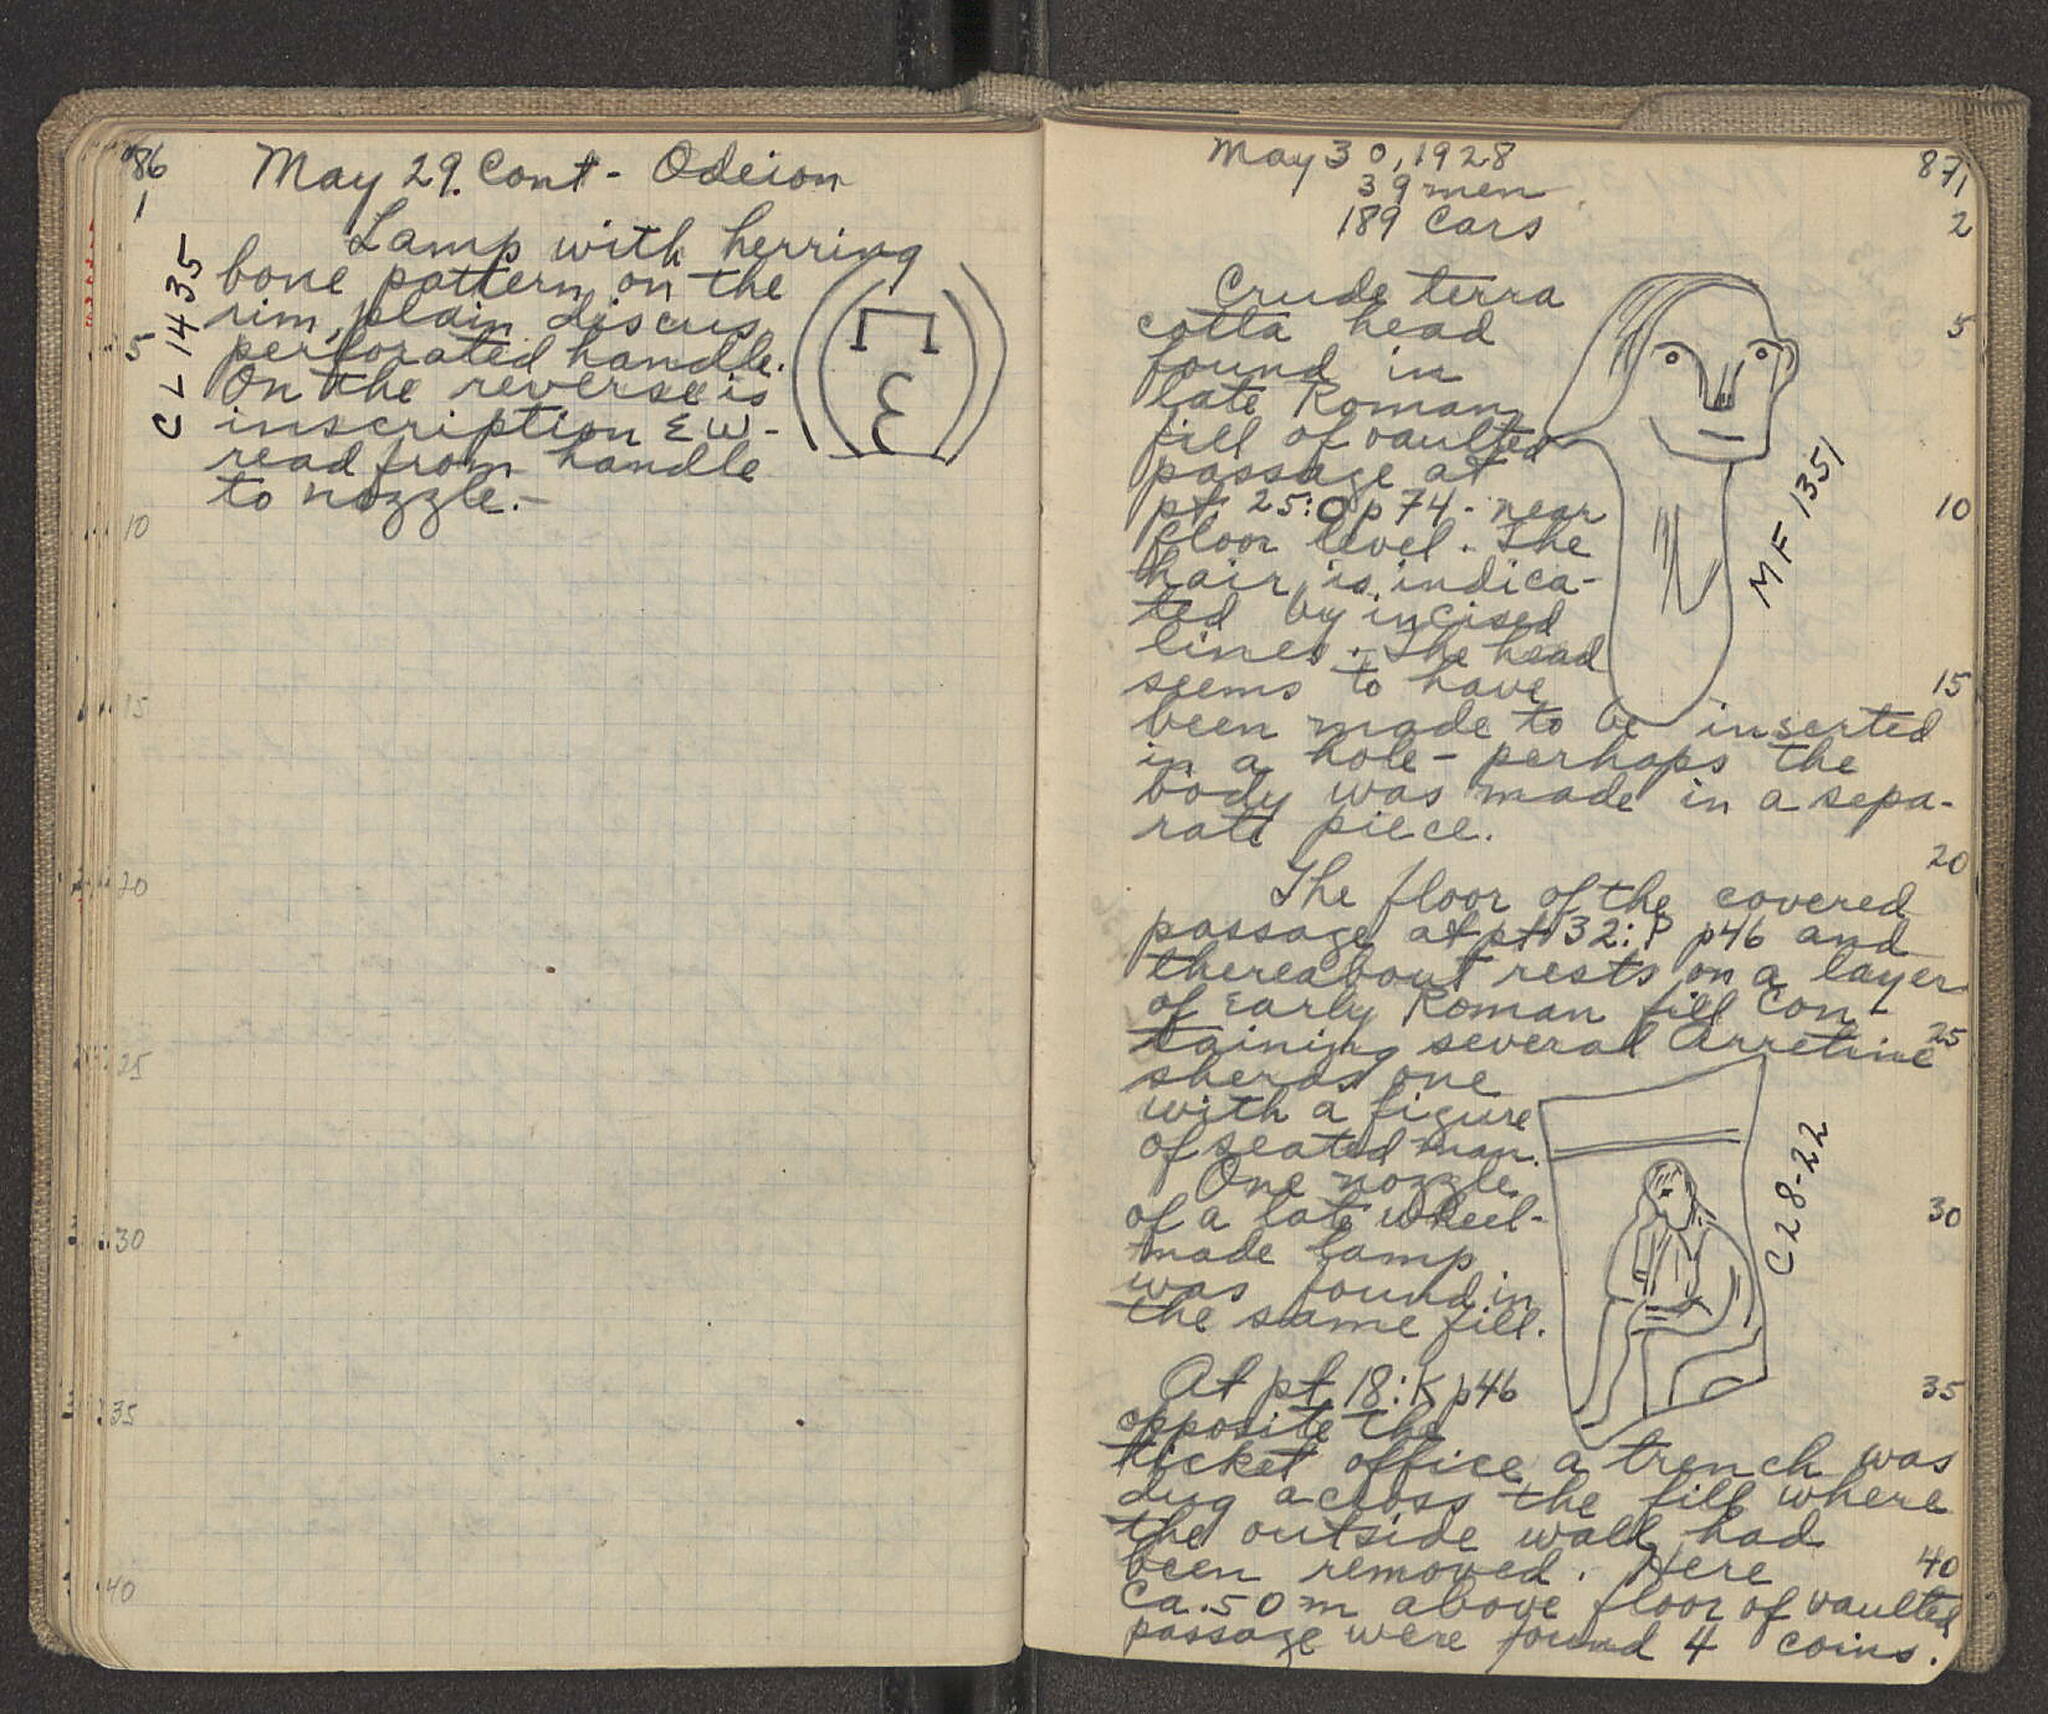 86
May 29. Cont - Odeion
1
Lamp with herring
bone pattern on the
rim, plain discus,
perforated handle.
On the reverse is
inscription Σ ω -
read from handle
to nozzle. -
CL 1435
Π
Ɛ
5
10
15
20
25
30
35
40
May 30, 1928
39 men
189 Cars
87
1
2
Crude terra
cotta head
found in
late Roman
fill of vaulted
passage at
pt. 25:O p 74 - near
floor level. The
hair is indica-
ted by incised
lines. The head
seems to have
been made to be inserted
in a hole - perhaps the
body was made in a sepa-
rate piece.
MF 1351
The floor of the covered
passage at pt 32:P p46 and
thereabout rests on a layer
of Early Roman fill con-
taining several Arretine
sherds one
with a figure
of seated man.
One nozzle
of a late wheel-
made lamp
was found in
the same fill.
C28-22
At pt. 18:K p46
opposite the
ticket office a trench was
dug across the fill where
the outside wall had
been removed. Here
ca .50 m above floor of vaulted
passage were found 4 coins.
5
10
15
20
25
30
35
40